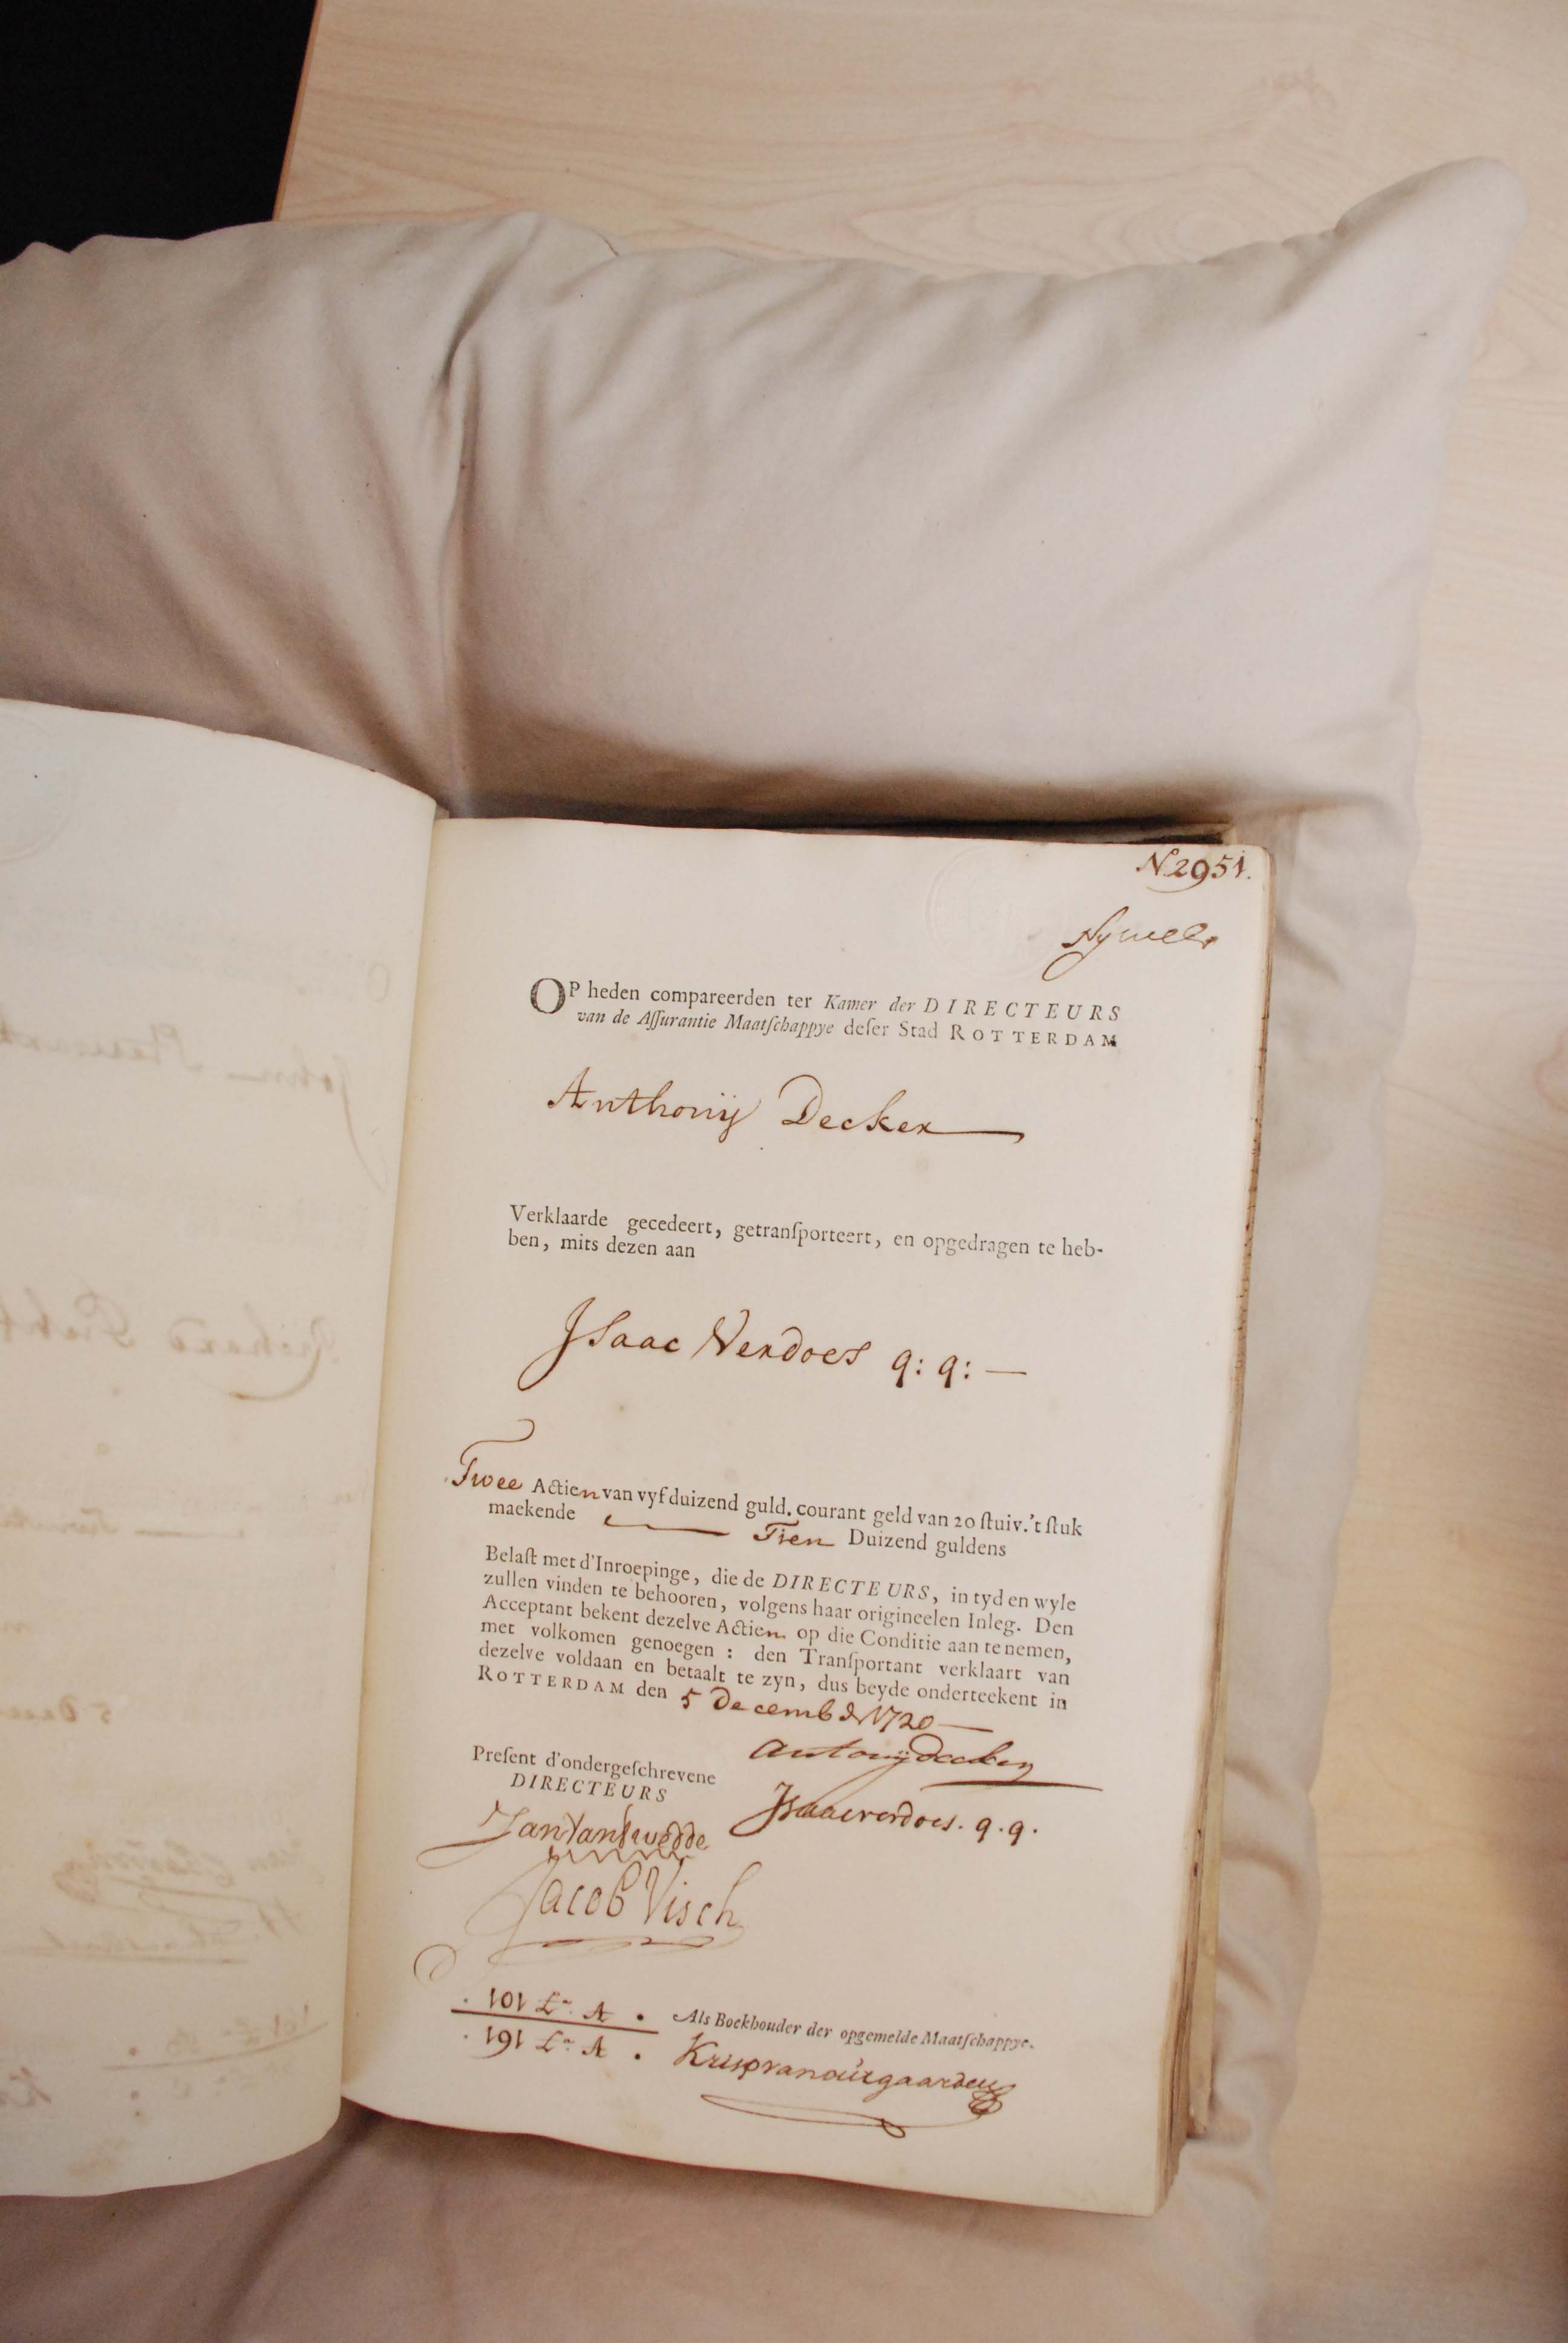 N. 2951.
OP heden compareerden ter Kamer der DIRECTEURS
van de Aſſurantie Maatſchappye deſer Stad ROTTERDAM
Anthonij Decker
Verklaarde gecedeert, getranſporteert, en opgedragen te heb-
ben, mits dezen aan
Isaac Verdoes q: q: —
Twee Actien van vyf duizend guld. courant geld van 20 ſtuiv. 't ſtuk
maekende — Tien Duizend guldens
Belaſt met d'Inroepinge, die de DIRECTEURS, in tyd en wyle
zullen vinden te behooren, volgens haar origineelen Inleg. Den
Acceptant bekent dezelve Actien op die Conditie aan te nemen,
met volkomen genoegen : den Tranſportant verklaart van
dezelve voldaan en betaalt te zyn, dus beyde onderteekent in
ROTTERDAM den 5 Decembr 1720 —
Antonij Decker
Preſent d'ondergeſchrevene
DIRECTEURS
Isaac verdoes. q. q.
Jacob Visch
101 Lr. A.
191 Lr. A.
Als Boekhouder der opgemelde Maatſchappye.